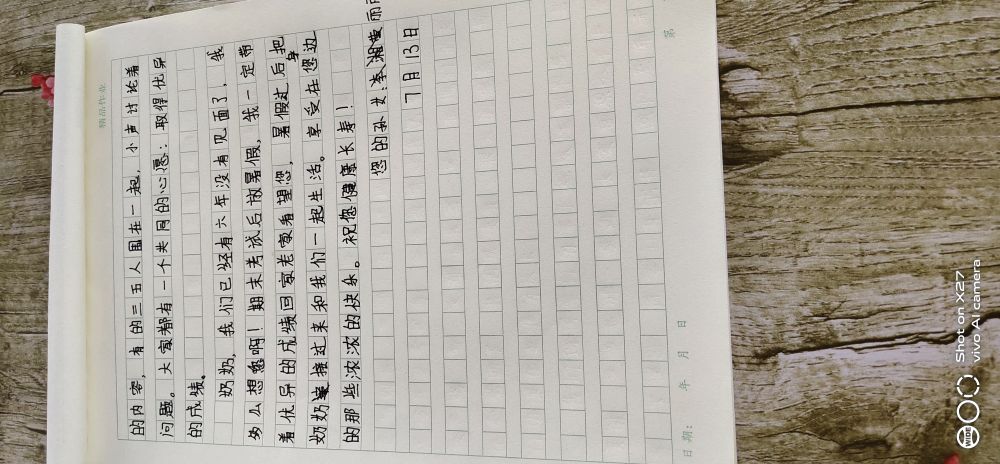 精品作业
的内容，有的三五人围在一起，小声讨论着
问题。大家都有一个共同的心愿：取得优异
的成绩。
奶奶，我们已经有六年没有见面了，我
多么想您啊！期末考试后放暑假，我一定带
着优异的成绩回家老家看望您，暑假过后把
奶奶接过来和我们一起生活。享受在您身边
的那些浓浓的快乐。祝您健康长寿！
您的孙女：李湘莹
7月13日
第
日期： 年 月 日
Shot on X27
vivo AI camera